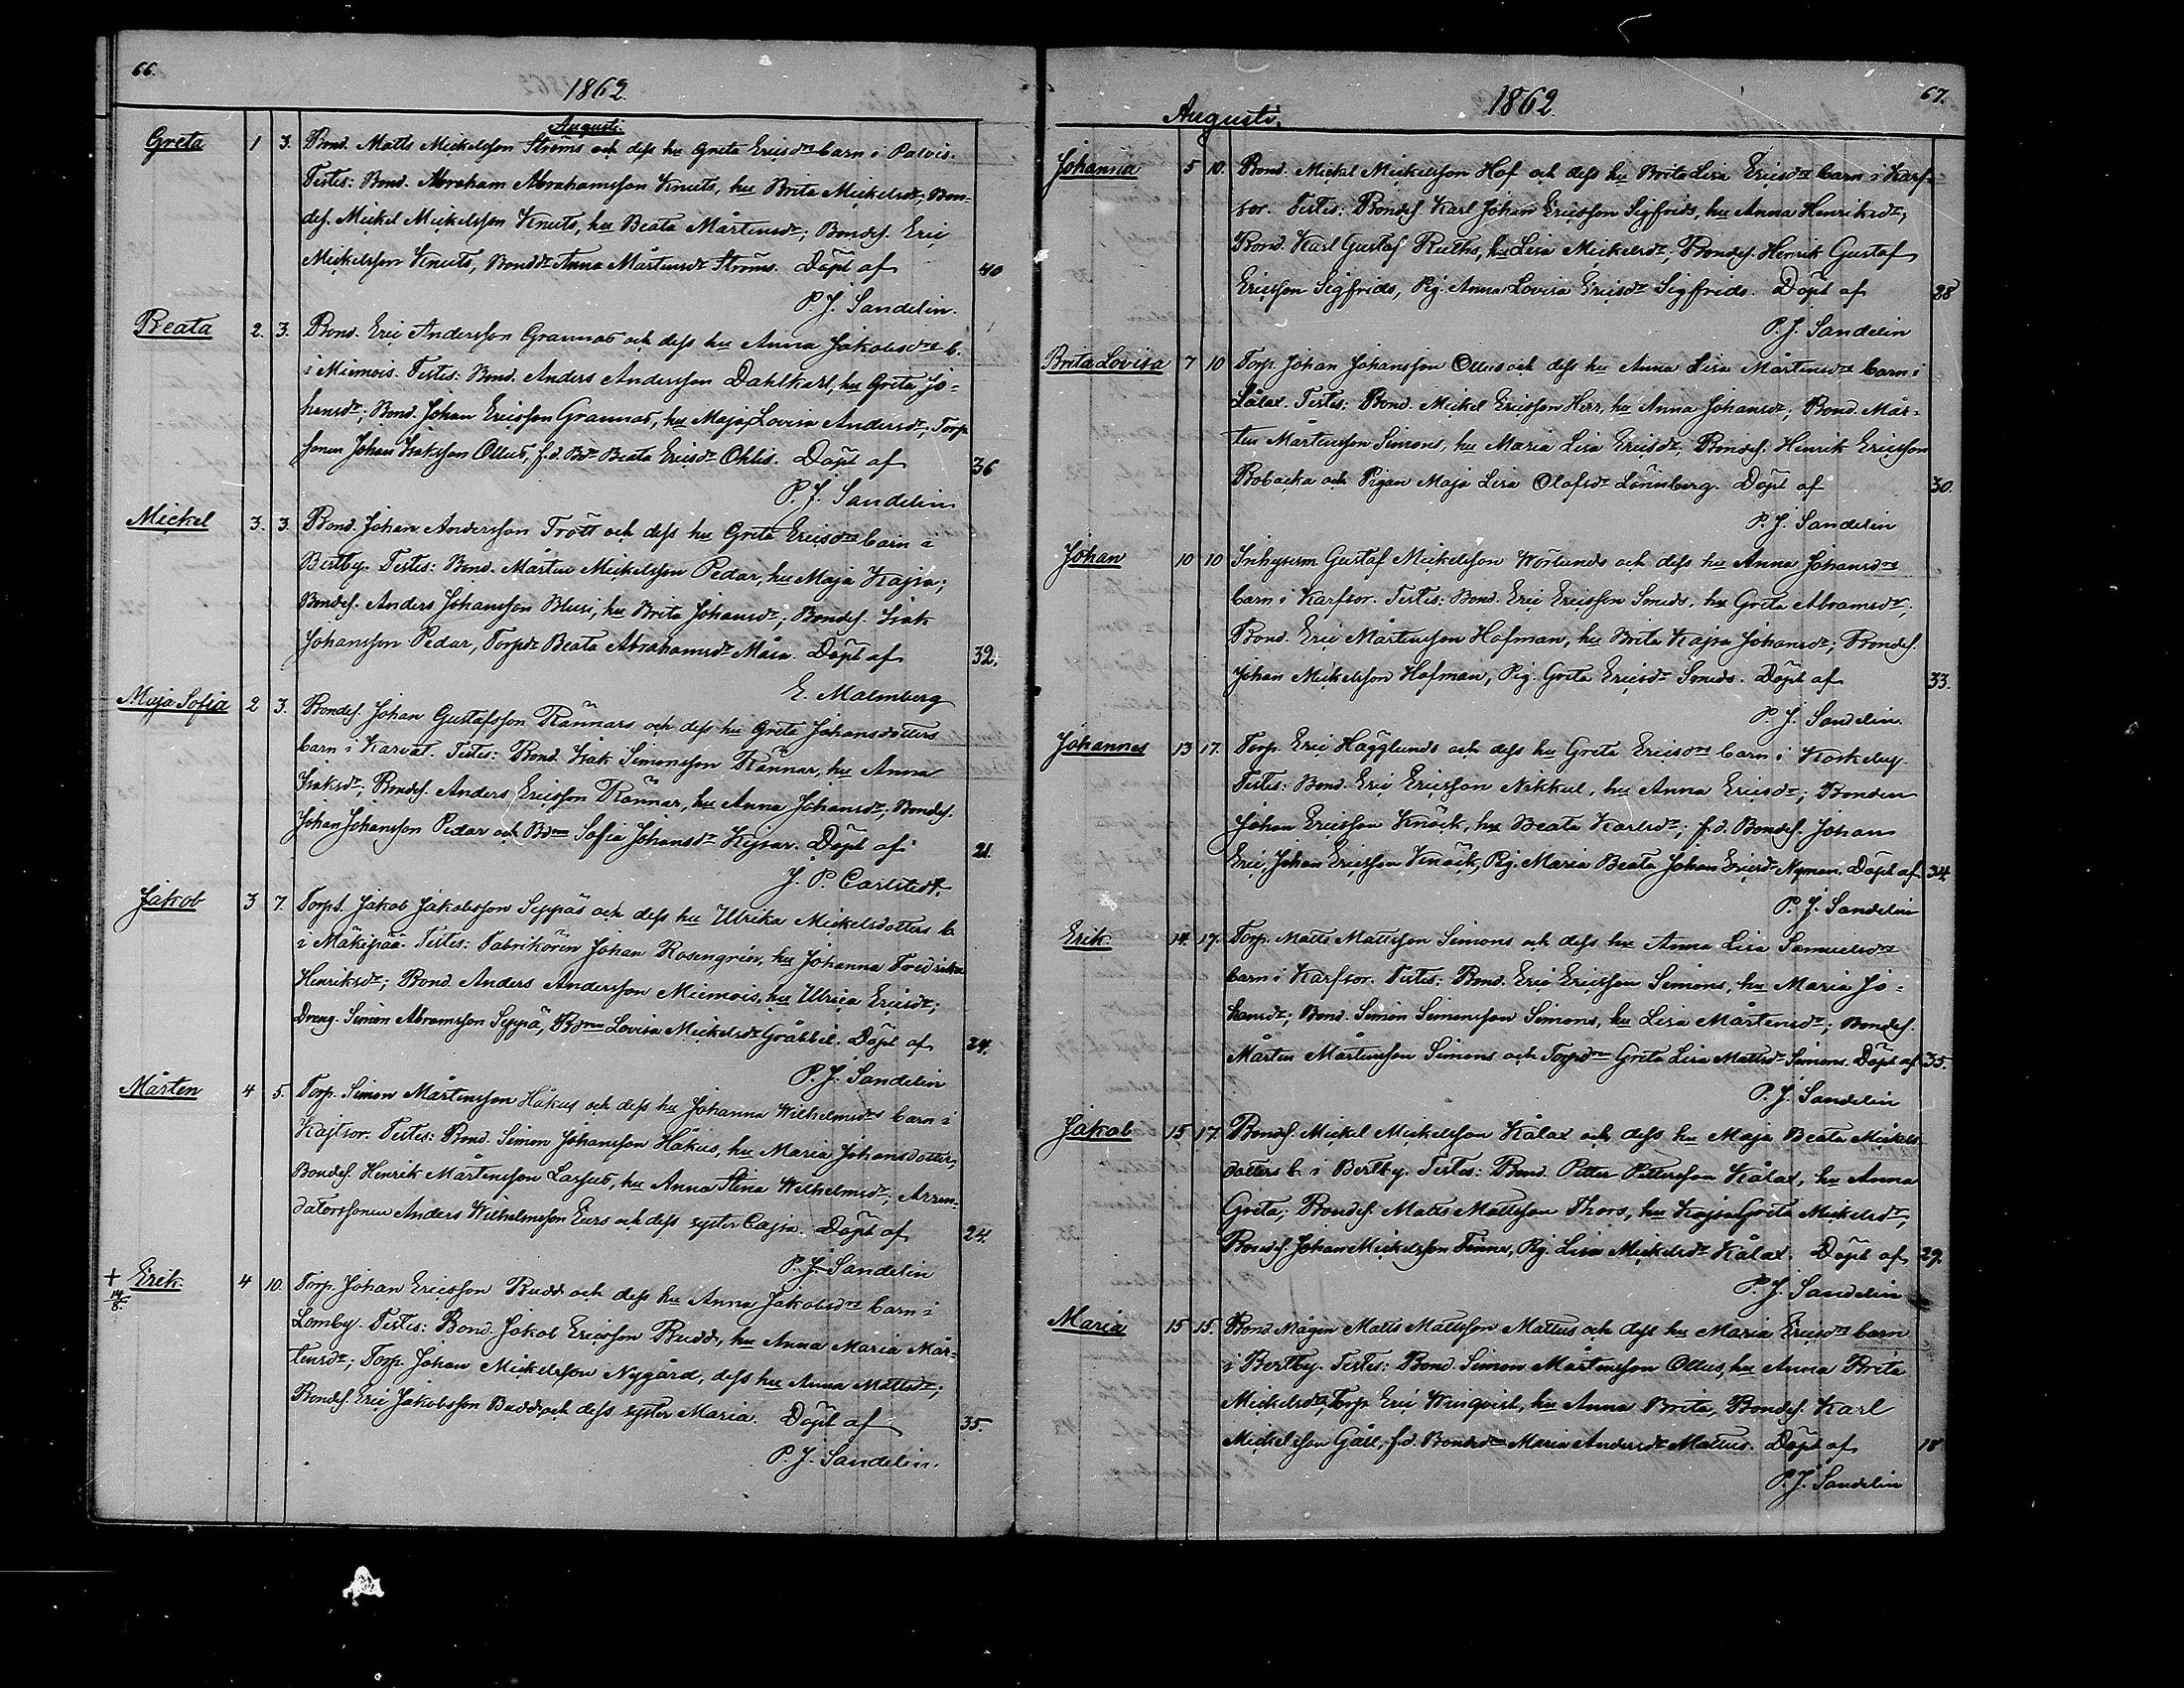 66.
1862.
Augusti.
Greta 1 3. Bond. Matts Mickelsson Ströms och dess hu Greta Ericsdrs barn i Palvis.
Testes: Bond. Abraham Abrahamsson Knuts, hu Brita Mickelsdr, Bon-
des. Mickel Mickelsson Knuts, hu Beata Mårtensdr; Bondes. Eric
Mickelsson Knuts, Bonddr Anna Mårtensdr Ströms. Döpt af 40
P. J. Sandelin.
Beata 2. 3. Bond. Eric Andersson Grannas och dess hu Anna Jakobsdrs b.
i Miemois. Testes: Bond. Anders Andersson Dahlkarl, hu Greta Jo-
hansdr; Bond. Johan Ericsson Grannas, hu Maja Lovisa Andersdr; Torp.
sonen Johan Isaksson Ollus, f.d. Bdr Beata Ericsdr Ohlis. Döpt af 36
P. J. Sandelin
Mickel 3. 3. Bond. Johan Andersson Trött och dess hu Greta Ericsdrs barn i
Bertby. Testes: Bond. Mårten Mickelsson Pedar, hu Maja Kajsa;
Bondes. Anders Johansson Blusi, hu Brita Johansdr; Bondes. Isak
Johansson Pedar, Torpdr Beata Abrahamsdr Måsa. Döpt af 32.
E. Malmberg
Maja Sofia 2 3. Bondes. Johan Gustafsson Rännars och dess hu Greta Johansdotters
barn i Karvat. Testes: Bond. Isak Simonsson Rännar, hu Anna
Isaksdr; Bondes. Anders Ericsson Rännar, hu Anna Johansdr; Bondes.
Johan Johansson Pedar och Bdrn Sofia Johansdr Kipar. Döpt af 21.
J. P. Carlstedt.
Jakob 3 7. Torp. Jakob Jakobsson Seppäs och dess hu Ulrika Mickelsdotters b.
i Mäkipää. Testes: Fabrikören Johan Rosengrén, hu Johanna Fredrika
Henriksdr; Bond. Anders Andersson Miemois, hu Ulrica Ericsdr;
Dreng. Simon Abramsson Seppä, Bdrn Lovisa Mickelsdr Gräbbil. Döpt af 24.
P. J. Sandelin
Mårten 4 5. Torp. Simon Mårtensson Håkus och dess hu Johanna Wilhelmsdrs barn i
Kajtsor. Testes: Bond. Simon Johansson Håkus, hu Maria Johansdotter,
Bondes. Henrik Mårtensson Lassus, hu Anna Stina Wilhelmsdr, Arren-
datorssonen Anders Wilhelmsson Eurs och dess syster Cajsa. Döpt af 24.
P. J. Sandelin
+ 14/8. Erik 4 10. Torp. Johan Ericsson Budd och dess hu Anna Jakobsdrs barn i
Lomby. Testes: Bond. Jakob Ericsson Budd, hu Anna Maria Mår-
tensdr; Torp. Johan Mickelsson Nygård, dess hu Anna Mattsdr;
Bondes. Eric Jakobsson Budd och dess syster Maria. Döpt af 35.
P. J. Sandelin.
67.
1862.
Augusti.
Johanna 5 10. Bond. Mickel Mickelsson Hof och dess hu Brita Lisa Ericsdrs barn i Karf-
sor. Testes: Bondes. Karl Johan Ericsson Sigfrids, hu Anna Henriksdr,
Bond. Karl Gustaf Ruths, hu Lisa Mickelsdr; Bondes. Henrik Gustaf
Ericsson Sigfrids, Pig. Anna Lovisa Ericsdr Sigfrids. Döpt af 28
P. J. Sandelin
Brita Lovisa 7 10 Torp. Johan Johansson Ollus och dess hu Anna Lisa Mårtensdrs barn i
Lålax. Testes: Bond. Mickel Ericsson Herr, hu Anna Johansdr; Bond. Mår-
ten Mårtensson Simons, hu Maria Lisa Ericsdr, Bondes. Henrik Ericsson
Bobacka och Pigan Maja Lisa Olofsdr Lönnberg. Döpt af 30.
P. J. Sandelin
Johan 10 10 Inhysesm Gustaf Mickelsson Wörlunds och dess hu Anna Johansdrs
barn i Karfsor. Testes: Bond. Eric Ericsson Smeds, hu Greta Abramsdr;
Bond. Eric Mårtensson Hofman, hu Brita Kajsa Johansdr; Bondes.
Johan Mickelsson Hofman, Pig. Greta Ericsdr Smeds. Döpt af 33.
P. J. Sandelin.
Johannes 13 17. Torp. Eric Hägglunds och dess hu Greta Ericsdrs barn i Koskeby.
Testes: Bond. Eric Ericsson Nikkul, hu Anna Ericsdr; Bonden
Johan Ericsson Knäck, hu Beata Karlsdr; f.d. Bondes. Johan
Eric Johan Ericsson Knäck, Pig. Maria Beata Johan Ericsdr Nyman. Döpt af 34.
P. J. Sandelin
Erik 14. 17. Torp. Matts Mattsson Simons och dess hu Anna Lisa Samuelsdrs
barn i Karfsor. Testes: Bond. Eric Ericsson Simons, hu Maria Jo-
hansdr; Bond. Simon Simonsson Simons, hu Lisa Mårtensdr; Bondes.
Mårten Mårtensson Simons och Torpdrn Greta Lisa Mattsdr Simons. Döpt af 35.
P. J. Sandelin
Jakob 15 17. Bondes. Mickel Mickelsson Kålax och dess hu Maja Beata Mickels-
dotters b. i Bertby. Testes: Bond. Petter Pettersson Kålax, hu Anna
Greta; Bondes. Matts Mattsson Thors, hu Kajsa Greta Mickelsdr;
Bondes. Johan Mickelsson Finne, Pig. Lisa Mickelsdr Kålax. Döpt af 29.
P. J. Sandelin
Maria 15 15. Bond Mågen Matts Mattsson Mattus och dess hu Maria Ericsdrs barn
i Bertby. Testes: Bond. Simon Mårtensson Ollus, hu Anna Brita
Mickelsdr, Torp. Eric Winqvist, hu Anna Brita, Bondes. Karl
Mickelsson Gåll, f.d. Bondedrn Maria Andersdr Mattus. Döpt af 18
P. J. Sandelin